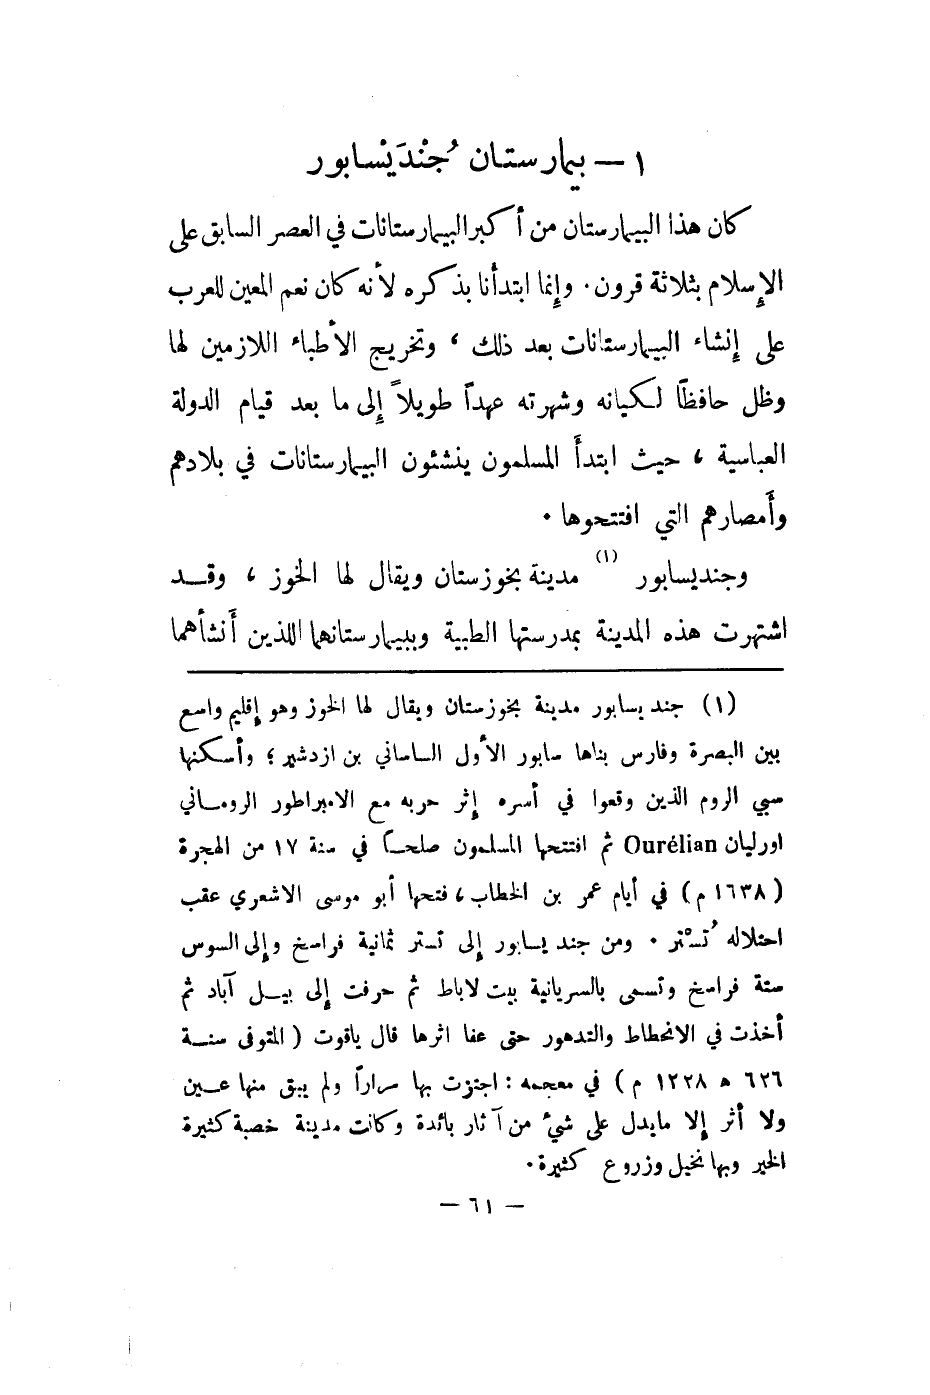 ١ — بيمارستان جُنْدَيْسابور
كان هذا البيمارستان من أكبر البيمارستانات في العصر السابق على
الإسلام بثلاثة قرون . وإنما ابتدأنا بذكره لأنه كان نعم المعين للعرب
على إنشاء البيمارستانات بعد ذلك ، وتخريج الأطباء اللازمين لها
وظل حافظاً لكيانه وشهرته عهداً طويلاً إلى ما بعد قيام الدولة
العباسية ، حيث ابتدأ المسلمون ينشئون البيمارستانات في بلادهم
وأمصارهم التي افتتحوها .
وجنديسابور (١) مدينة بخوزستان ويقال لها الخوز ، وقد
اشتهرت هذه المدينة بمدرستها الطبية وببيمارستانها اللذين أنشأهما
(١) جنديسابور مدينة بخوزستان ويقال لها الخوز وهو إقليم واسع
بين البصرة وفارس بناها سابور الأول الساساني بن ازدشير ؛ وأسكنها
سبي الروم الذين وقعوا في أسره إثر حربه مع الامبراطور الروماني
اورليان Ourélian ثم افتتحها المسلمون صلحاً في سنة ١٧ من الهجرة
(١٦٣٨ م) في أيام عمر بن الخطاب ، فتحها أبو موسى الاشعري عقب
احتلاله تُسْتر . ومن جنديسابور إلى تستر ثمانية فراسخ وإلى السوس
ستة فراسخ وتسمى بالسريانية بيت لاباط ثم حرفت إلى بيل آباد ثم
أخذت في الانحطاط والتدهور حتى عفا اثرها قال ياقوت ( المتوفى سنة
٦٢٦ ه ١٢٢٨ م ) في معجمه : اجتزت بها مراراً ولم يبق منها عين
ولا أثر إلا مايدل على شيء من آثار بائدة وكانت مدينة خصبة كثيرة
الخير وبها نخيل وزروع كثيرة .
— ٦١ —